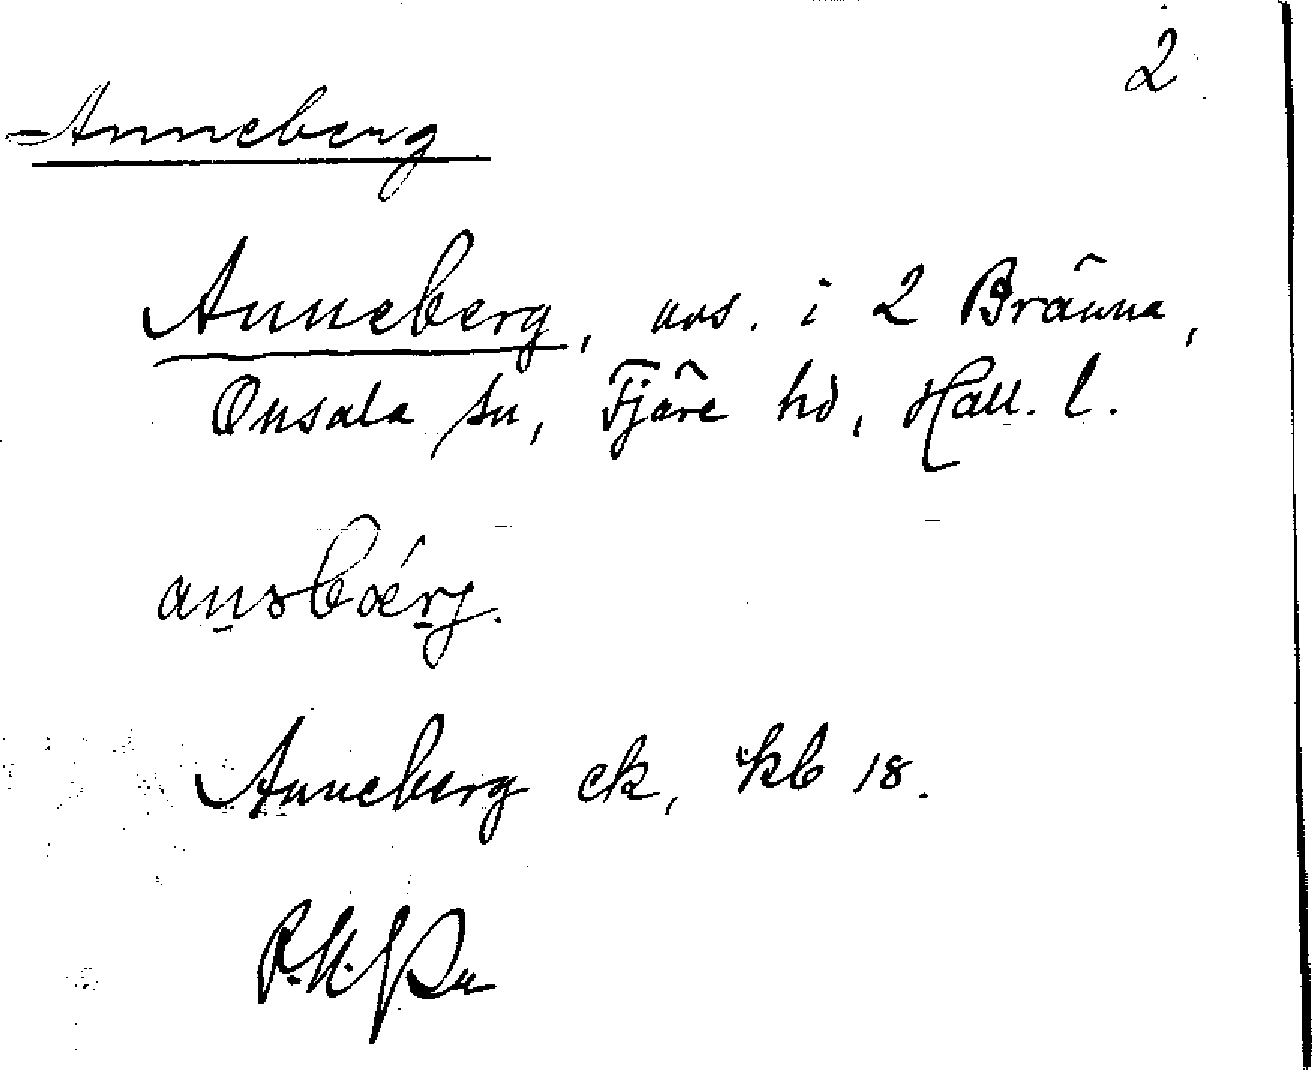 2
Anneberg
Anneberg, avs. i 2 Bränna,
Onsala sn, Fjäre hd, Hall. l.
Anneberg ek, kb 18.